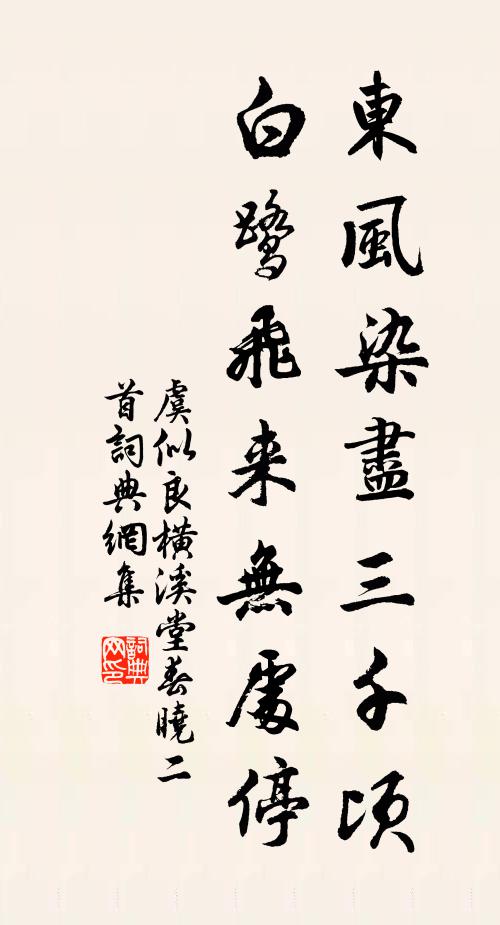 東風染盡三千頃
白鷺飛来無處停
虞似良横溪堂春曉二
首詞典網集
詞典
网印